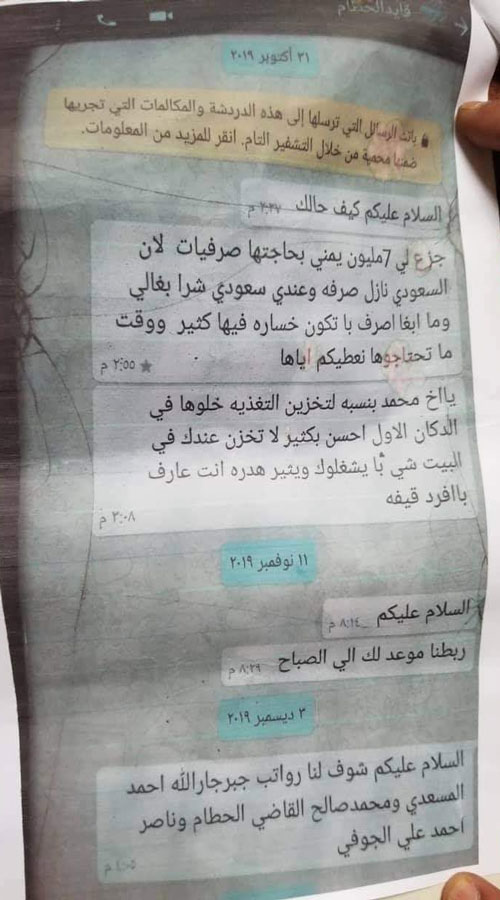 قايدالحطام
٣١ أكتوبر ٢٠١٩
باتت الرسائل التي ترسلها إلى هذه الدردشة والمكالمات التي تجريها
ضمنها محمية من خلال التشفير التام. انقر للمزيد من المعلومات.
السلام عليكم كيف حالك
٢:٢٧ م
جزع لي 7مليون يمني بحاجتها صرفيات لان
السعودي نازل صرفه وعندي سعودي شرا بغالي
وما ابغا اصرف با تكون خساره فيها كثير ووقت
ما تحتاجوها نعطيكم اياها
٢:٥٥ م
يااخ محمد بنسبه لتخزين التغذيه خلوها في
الدكان الاول احسن بكثير لا تخزن عندك في
البيت شي با يشغلوك ويثير هدره انت عارف
باافرد قيفه
٣:٠٨ م
١١ نوفمبر ٢٠١٩
السلام عليكم
٨:١٤ م
ربطنا موعد لك الي الصباح
٨:٢٩ م
٣ ديسمبر ٢٠١٩
السلام عليكم شوف لنا رواتب جبرجارالله احمد
المسعدي ومحمدصالح القاضي الحطام وناصر
احمد علي الجوفي